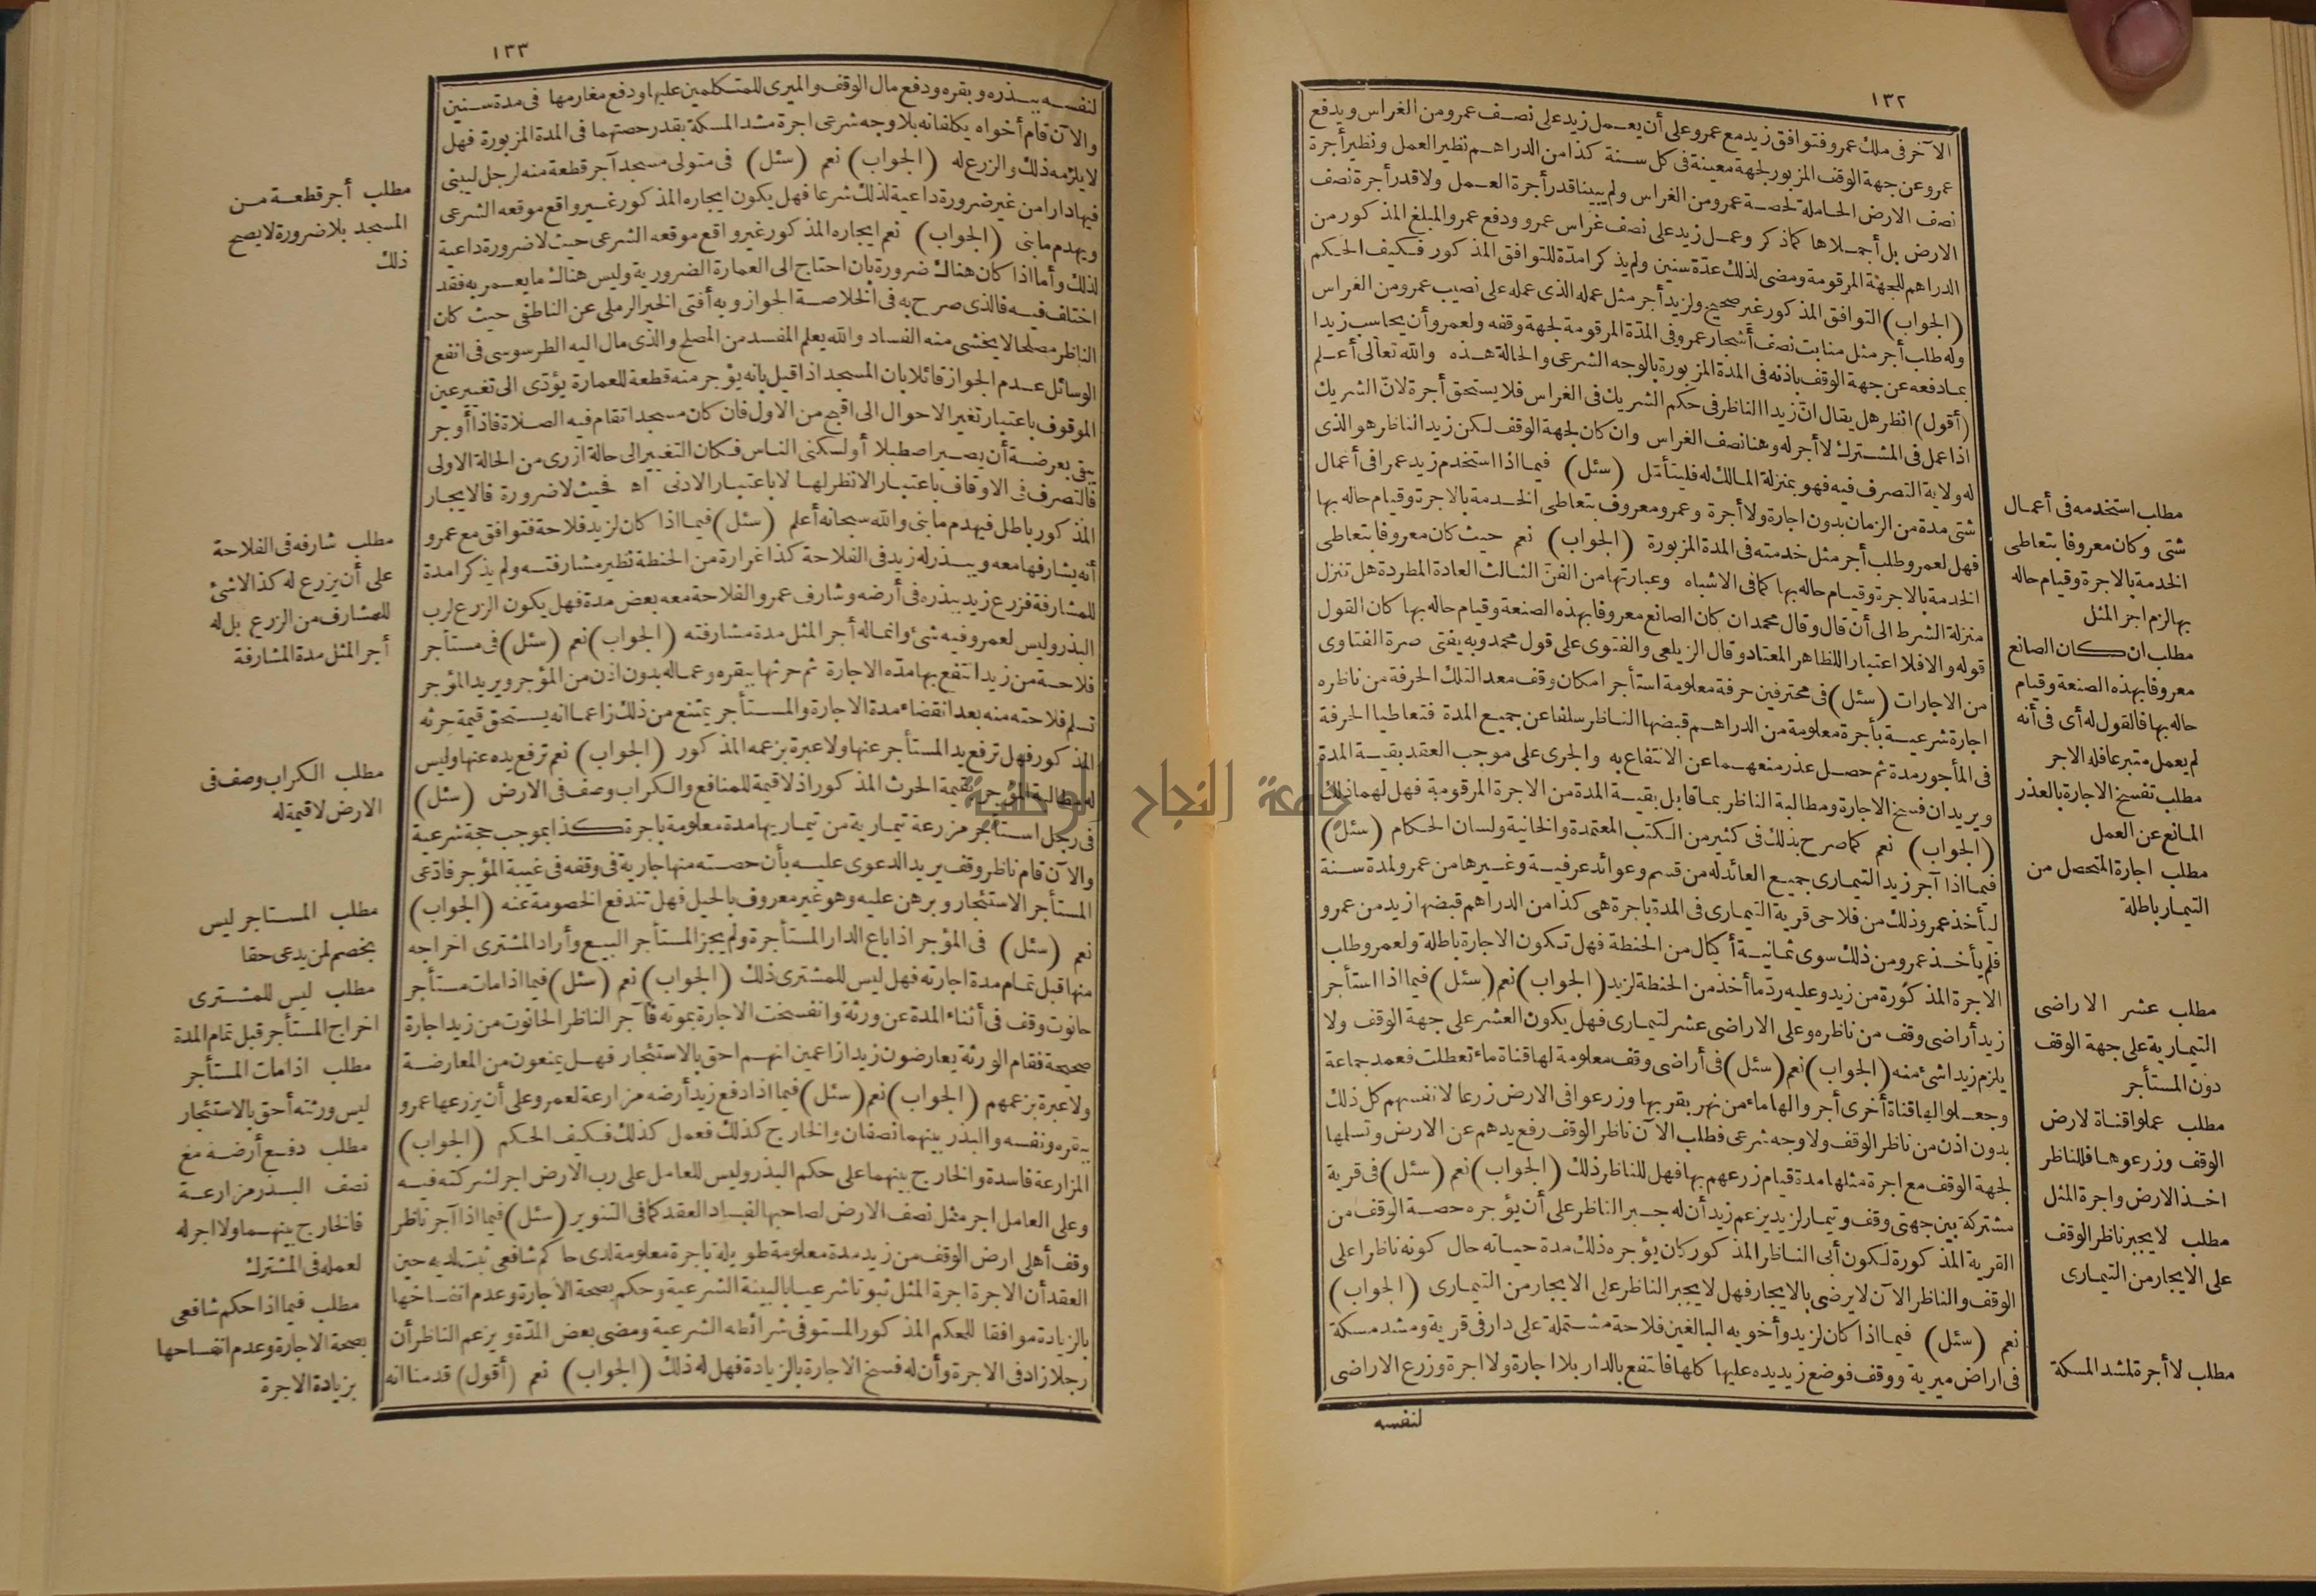 ١٣٢
الآخر فى ملك عمرو فتوافق زيد مع عمرو على أن يعمل زيد على نصف عمرو من الغراس ويدفع
عمرو عن جهة الوقف المزبور لجهة معينة فى كل سنة كذا من الدراهم نظير العمل ونظير أجرة
نصف الارض الحاملة لحصة عمرو من الغراس ولم يبينا قدر أجرة العمل ولا قدر أجرة نصف
الارض بل أجملاها كما ذكر وعمل زيد على نصف غراس عمرو ودفع عمرو المبلغ المذكور من
الدراهم للجهة المرقومة ومضى لذلك عدّة سنين ولم يذكرا مدة للتوافق المذكور فكيف الحكم
(الجواب) التوافق المذكور غير صحيح ولزيد أجر مثل عمله الذى عمله على نصيب عمرو من الغراس
وله طلب أجر مثل منابت نصف أشجار عمرو فى المدّة المرقومة لجهة وقفه ولعمرو أن يحاسب زيدا
بما دفعه عن جهة الوقف باذنه فى المدة المزبورة بالوجه الشرعى والحالة هذه والله تعالى أعلم
(أقول) انظر هل يقال انّ زيدا الناظر فى حكم الشريك فى الغراس فلا يستحق أجرة لانّ الشريك
اذا عمل فى المشترك لا أجر له وهنا نصف الغراس وان كان لجهة الوقف لكن زيد الناظر هو الذى
له ولاية التصرف فيه فهو بمنزلة المالك له فليتأمّل (سئل) فيما اذا استخدم زيد عمرا فى أعمال
شتى مدة من الزمان بدون اجارة ولا أجرة وعمرو معروف بتعاطى الخدمة بالاجرة وقيام حاله بها
فهل لعمرو طلب أجر مثل خدمته فى المدة المزبورة (الجواب) نعم حيث كان معروفا بتعاطى
الخدمة بالاجرة وقيام حاله بها كما فى الاشباه وعبارتها من الفنّ الثالث العادة المطردة هل تنزل
منزلة الشرط الى أن قال وقال محمد ان كان الصانع معروفا بهذه الصنعة وقيام حاله بها كان القول
قوله والا فلا اعتبارا للظاهر المعتاد وقال الزيلعى والفتوى على قول محمد وبه يفتى صرة الفتاوى
من الاجارات (سئل) فى محترفين حرفة معلومة استأجرا مكان وقف معد التلك الحرفة من ناظره
اجارة شرعية بأجرة معلومة من الدراهم قبضها الناظر سلفا عن جميع المدة فتعاطيا الحرفة
فى المأجور مدة ثم حصل عذر منعهما عن الانتفاع به والجرى على موجب العقد بقية المدة
ويريدان فسخ الاجارة ومطالبة الناظر بما قابل بقية المدة من الاجرة المرقومة فهل لهما ذلك
(الجواب) نعم كما صرح بذلك فى كثير من الكتب المعتمدة والخانية ولسان الحكام (سئل)
فيما اذا آجر زيد التيمارى جميع العائد له من قسم وعوائد عرفية وغيرها من عمرو لمدة سنة
ليأخذ عمرو ذلك من فلاحى قرية التيمارى فى المدة باجرة هى كذا من الدراهم قبضها زيد من عمرو
فلم يأخذ عمرو من ذلك سوى ثمانية أكيال من الحنطة فهل تكون الاجارة باطلة ولعمرو طلب
الاجرة المذكورة من زيد وعليه ردّ ما أخذ من الحنطة لزيد (الجواب) نعم (سئل) فيما اذا استأجر
زيد أراضى وقف من ناظره وعلى الاراضى عشر لتيمارى فهل يكون العشر على جهة الوقف ولا
يلزم زيدا شئ منه (الجواب) نعم (سئل) فى أراضى وقف معلومة لها قناة ماء تعطلت فعمد جماعة
وجعلوا لها قناة أخرى أجروا لها ماء من نهر بقربها وزرعوا فى الارض زرعا لانفسهم كل ذلك
بدون اذن من ناظر الوقف ولا وجه شرعى فطلب الآن ناظر الوقف رفع يدهم عن الارض وتسلمها
لجهة الوقف مع اجرة مثلها مدة قيام زرعهم بها فهل للناظر ذلك (الجواب) نعم (سئل) فى قرية
مشتركة بين جهتى وقف وتيمار لزيد يزعم زيد أن له جبر الناظر على أن يؤجره حصة الوقف من
القرية المذكورة لكون أبى الناظر المذكور كان يؤجره ذلك مدة حياته حال كونه ناظرا على
الوقف والناظر الآن لا يرضى بالايجار فهل لا يجبر الناظر على الايجار من التيمارى (الجواب)
نعم (سئل) فيما اذا كان لزيد وأخويه البالغين فلاحة مشتملة على دار فى قرية ومشد مسكة
فى اراض ميرية ووقف فوضع زيد يده عليها كلها فانتفع بالدار بلا اجارة ولا اجرة وزرع الاراضى
لنفسه
مطلب استخدمه فى أعمال
شتى وكان معروفا بتعاطى
الخدمة بالاجرة وقيام حاله
بها لزم اجر المثل
مطلب ان كان الصانع
معروفا بهذه الصنعة وقيام
حاله بها فالقول له أى فى أنه
لم يعمل متبرعا فله الاجر
مطلب تفسخ الاجارة بالعذر
المانع عن العمل
مطلب اجارة المتحصل من
التيمار باطلة
مطلب عشر الاراضى
التيمارية على جهة الوقف
دون المستأجر
مطلب عملوا قناة لارض
الوقف وزرعوها فللناظر
اخذ الارض واجرة المثل
مطلب لا يجبر ناظر الوقف
على الايجار من التيمارى
مطلب لا أجرة لمشد المسكة
١٣٣
لنفسه ببذره وبقره ودفع مال الوقف والميرى للمتكلمين عليها ودفع مغارمها فى مدة سنين
والآن قام أخواه يكلفانه بلا وجه شرعى اجرة مشد المسكة بقدر حصتهما فى المدة المزبورة فهل
لا يلزمه ذلك والزرع له (الجواب) نعم (سئل) فى متولى مسجد آجر قطعة منه لرجل ليبنى
فيها دارا من غير ضرورة داعية لذلك شرعا فهل يكون ايجاره المذكور غير واقع موقعه الشرعى
ويهدم ما بنى (الجواب) نعم ايجاره المذكور غير واقع موقعه الشرعى حيث لا ضرورة داعية
لذلك وأما اذا كان هناك ضرورة بان احتاج الى العمارة الضرورية وليس هناك ما يعمر به فقد
اختلف فيه فالذى صرح به فى الخلاصة الجواز وبه أفتى الخير الرملى عن الناطفى حيث كان
الناظر مصلحا لا يخشى منه الفساد والله يعلم المفسد من المصلح والذى مال اليه الطرسوسى فى انفع
الوسائل عدم الجواز قائلا بان المسجد اذا قيل بانه يؤجر منه قطعة للعمارة يؤدّى الى تغيير عين
الموقوف باعتبار تغير الاحوال الى اقبح من الاول فان كان مسجدا تقام فيه الصلاة فاذا أوجر
يبقى بعرضة أن يصير اصطبلا أو لسكنى الناس فكان التغيير الى حالة ازرى من الحالة الاولى
فالتصرف فى الاوقاف باعتبار الانظر لها لا باعتبار الادنى اه فحيث لا ضرورة فالايجار
المذكور باطل فيهدم ما بنى والله سبحانه أعلم (سئل) فيما اذا كان لزيد فلاحة فتوافق مع عمرو
أنه يشارفها معه ويبذر له زيد فى الفلاحة كذا غرارة من الحنطة نظير مشارفته ولم يذكرا مدة
للمشارفة فزرع زيد ببذره فى أرضه وشارف عمرو الفلاحة معه بعض مدة فهل يكون الزرع لرب
البذر وليس لعمرو فيه شئ وانما له أجر المثل مدة مشارفته (الجواب) نعم (سئل) فى مستأجر
فلاحة من زيد انتفع بها مدّه الاجارة ثم حرثها ببقره وعماله بدون اذن من المؤجر ويريد المؤجر
تسلم فلاحته منه بعد انقضاء مدة الاجارة والمستأجر يمتنع من ذلك زاعما انه يستحق قيمة حرثه
المذكور فهل ترفع يد المستأجر عنها ولا عبرة بزعمه المذكور (الجواب) نعم ترفع يده عنها وليس
له مطالبة المؤجر بقيمة الحرث المذكور اذ لا قيمة للمنافع والكراب وصف فى الارض (سئل)
فى رجل استأجر مزرعة تيمارية من تيماريها مدة معلومة باجرة كذا بموجب حجة شرعية
والآن قام ناظر وقف يريد الدعوى عليه بأن حصته منها جارية فى وقفه فى غيبة المؤجر فادّعى
المستأجر الاستئجار وبرهن عليه وهو غير معروف بالحيل فهل تندفع الخصومة عنه (الجواب)
نعم (سئل) فى المؤجر اذا باع الدار المستأجرة ولم يجز المستأجر البيع وأراد المشترى اخراجه
منها قبل تمام مدة اجارته فهل ليس للمشترى ذلك (الجواب) نعم (سئل) فيما اذا مات مستأجر
حانوت وقف فى أثناء المدة عن ورثة وانفسخت الاجارة بموته فآجر الناظر الحانوت من زيد اجارة
صحيحة فقام الورثة يعارضون زيدا زاعمين انهم احق بالاستئجار فهل يمنعون من المعارضة
ولا عبرة بزعمهم (الجواب) نعم (سئل) فيما اذا دفع زيد أرضه مزارعة لعمرو على أن يزرعها عمرو
ببقره ونفسه والبذر بينهما نصفان والخارج كذلك فعمل كذلك فكيف الحكم (الجواب)
المزارعة فاسدة والخارج بينهما على حكم البذر وليس للعامل على رب الارض اجر لشركته فيه
وعلى العامل اجر مثل نصف الارض لصاحبها لفساد العقد كما فى التنوير (سئل) فيما اذا آجر ناظر
وقف أهلى ارض الوقف من زيد مدة معلومة طويلة باجرة معلومة لدى حاكم شافعى ثبت لديه حين
العقد أن الاجرة اجرة المثل ثبوتا شرعيا بالبينة الشرعية وحكم بصحة الاجارة وعدم انفساخها
بالزيادة موافقا للحكم المذكور المستوفى شرائطه الشرعية ومضى بعض المدّة ويزعم الناظر أن
رجلا زاد فى الاجرة وأن له فسخ الاجارة بالزيادة فهل له ذلك (الجواب) نعم (أقول) قدمنا انه
مطلب أجر قطعة من
المسجد بلا ضرورة لا يصح
ذلك
مطلب شارفه فى الفلاحة
على أن يزرع له كذا لا شئ
للمشارف من الزرع بل له
أجر المثل مدة المشارفة
مطلب الكراب وصف فى
الارض لا قيمة له
مطلب المستاجر ليس
بخصم لمن يدعى حقا
مطلب ليس للمشترى
اخراج المستأجر قبل تمام المدة
مطلب اذا مات المستأجر
ليس ورثته أحق بالاستئجار
مطلب دفع أرضه مع
نصف البذر مزارعة
فالخارج بينهما ولا اجر له
لعمله فى المشترك
مطلب فيما اذا حكم شافعى
بصحة الاجارة وعدم انفساخها
بزيادة الاجرة
جامعة النجاح الوطنية